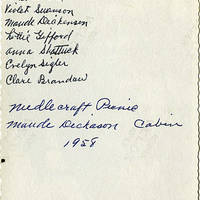 Violet Swanson
Maude Dickinson
Lottie Gifford
Anna Shattuck
Evelyn Sigler
Clare Brandaw
Needlecraft Picnic
Maude Dickason Cabin
1958